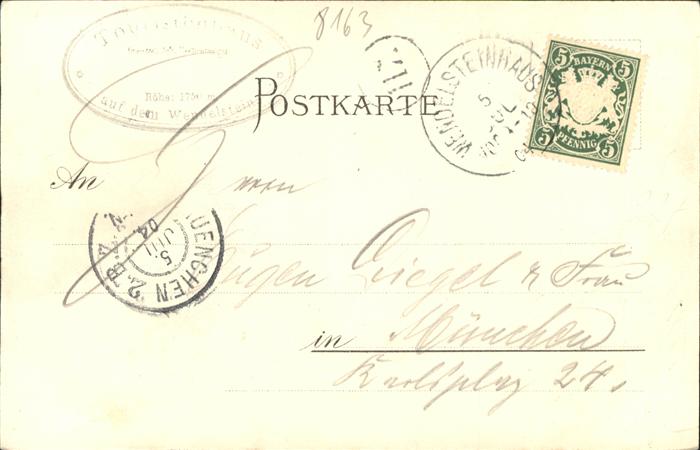 8163
Touristenhaus
Höhe: 1750 m
auf dem Wendelstein
POSTKARTE
WENDELSTEINHAUS
5 JUL
04
5
5
BAYERN
PFENNIG
5
5
An Herrn
MUENCHEN 2.B.
5 JUL 04
N.
Eugen Siegel & Frau
in München
Karlsplaz 24.